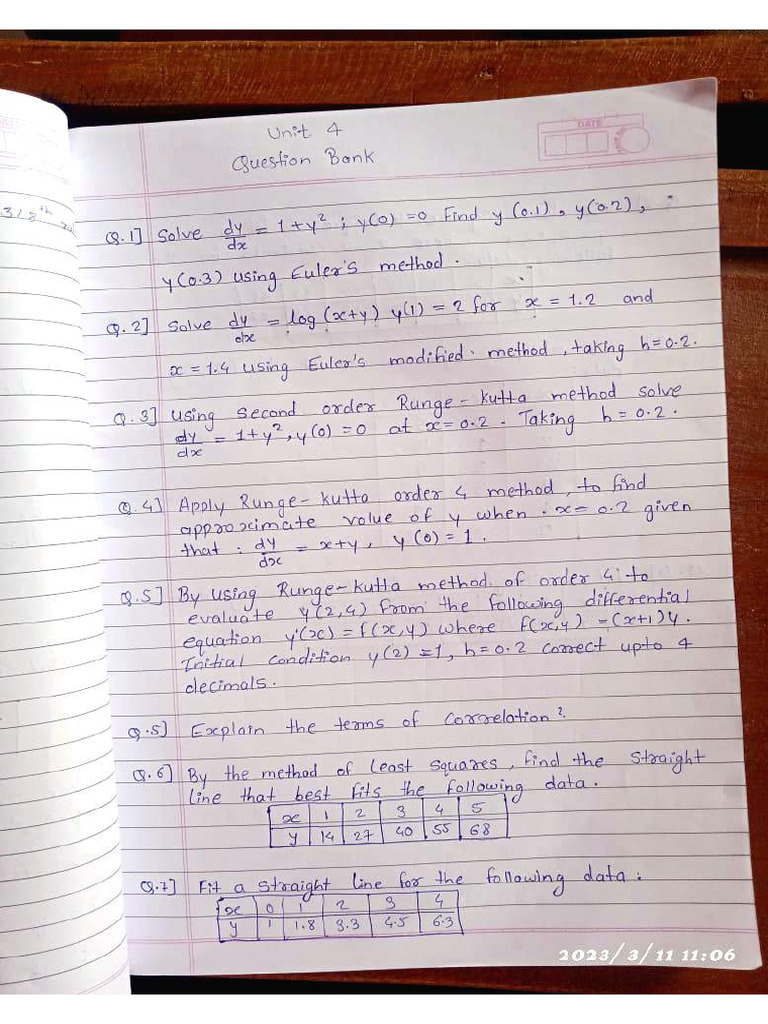 Unit 4
DATE
Question Bank
3/8th
Q.1] Solve dy/dx = 1+y²; y(0)=0 Find y(0.1), y(0.2),
y(0.3) using Euler's method.
Q.2] Solve dy/dx = log(x+y) y(1)=2 for x = 1.2 and
x = 1.4 using Euler's modified method, taking h=0.2.
Q.3] Using second order Runge-kutta method solve
dy/dx = 1+y², y(0)=0 at x=0.2. Taking h=0.2.
Q.4] Apply Runge-kutta order 4 method, to find
approximate value of y when x=0.2 given
that : dy/dx = x+y, y(0)=1.
Q.5] By using Runge-kutta method of order 4 to
evaluate y(2,4) from the following differential
equation y'(x)=f(x,y) where f(x,y)=(x+1)y.
Initial condition y(2)=1, h=0.2 correct upto 4
decimals.
Q.5] Explain the terms of correlation?
Q.6] By the method of least squares, find the straight
line that best fits the following data.
x 1 2 3 4 5
y 14 27 40 55 68
Q.7] Fit a straight line for the following data:
x 0 1 2 3 4
y 1 1.8 3.3 4.5 6.3
2023/3/11 11:06